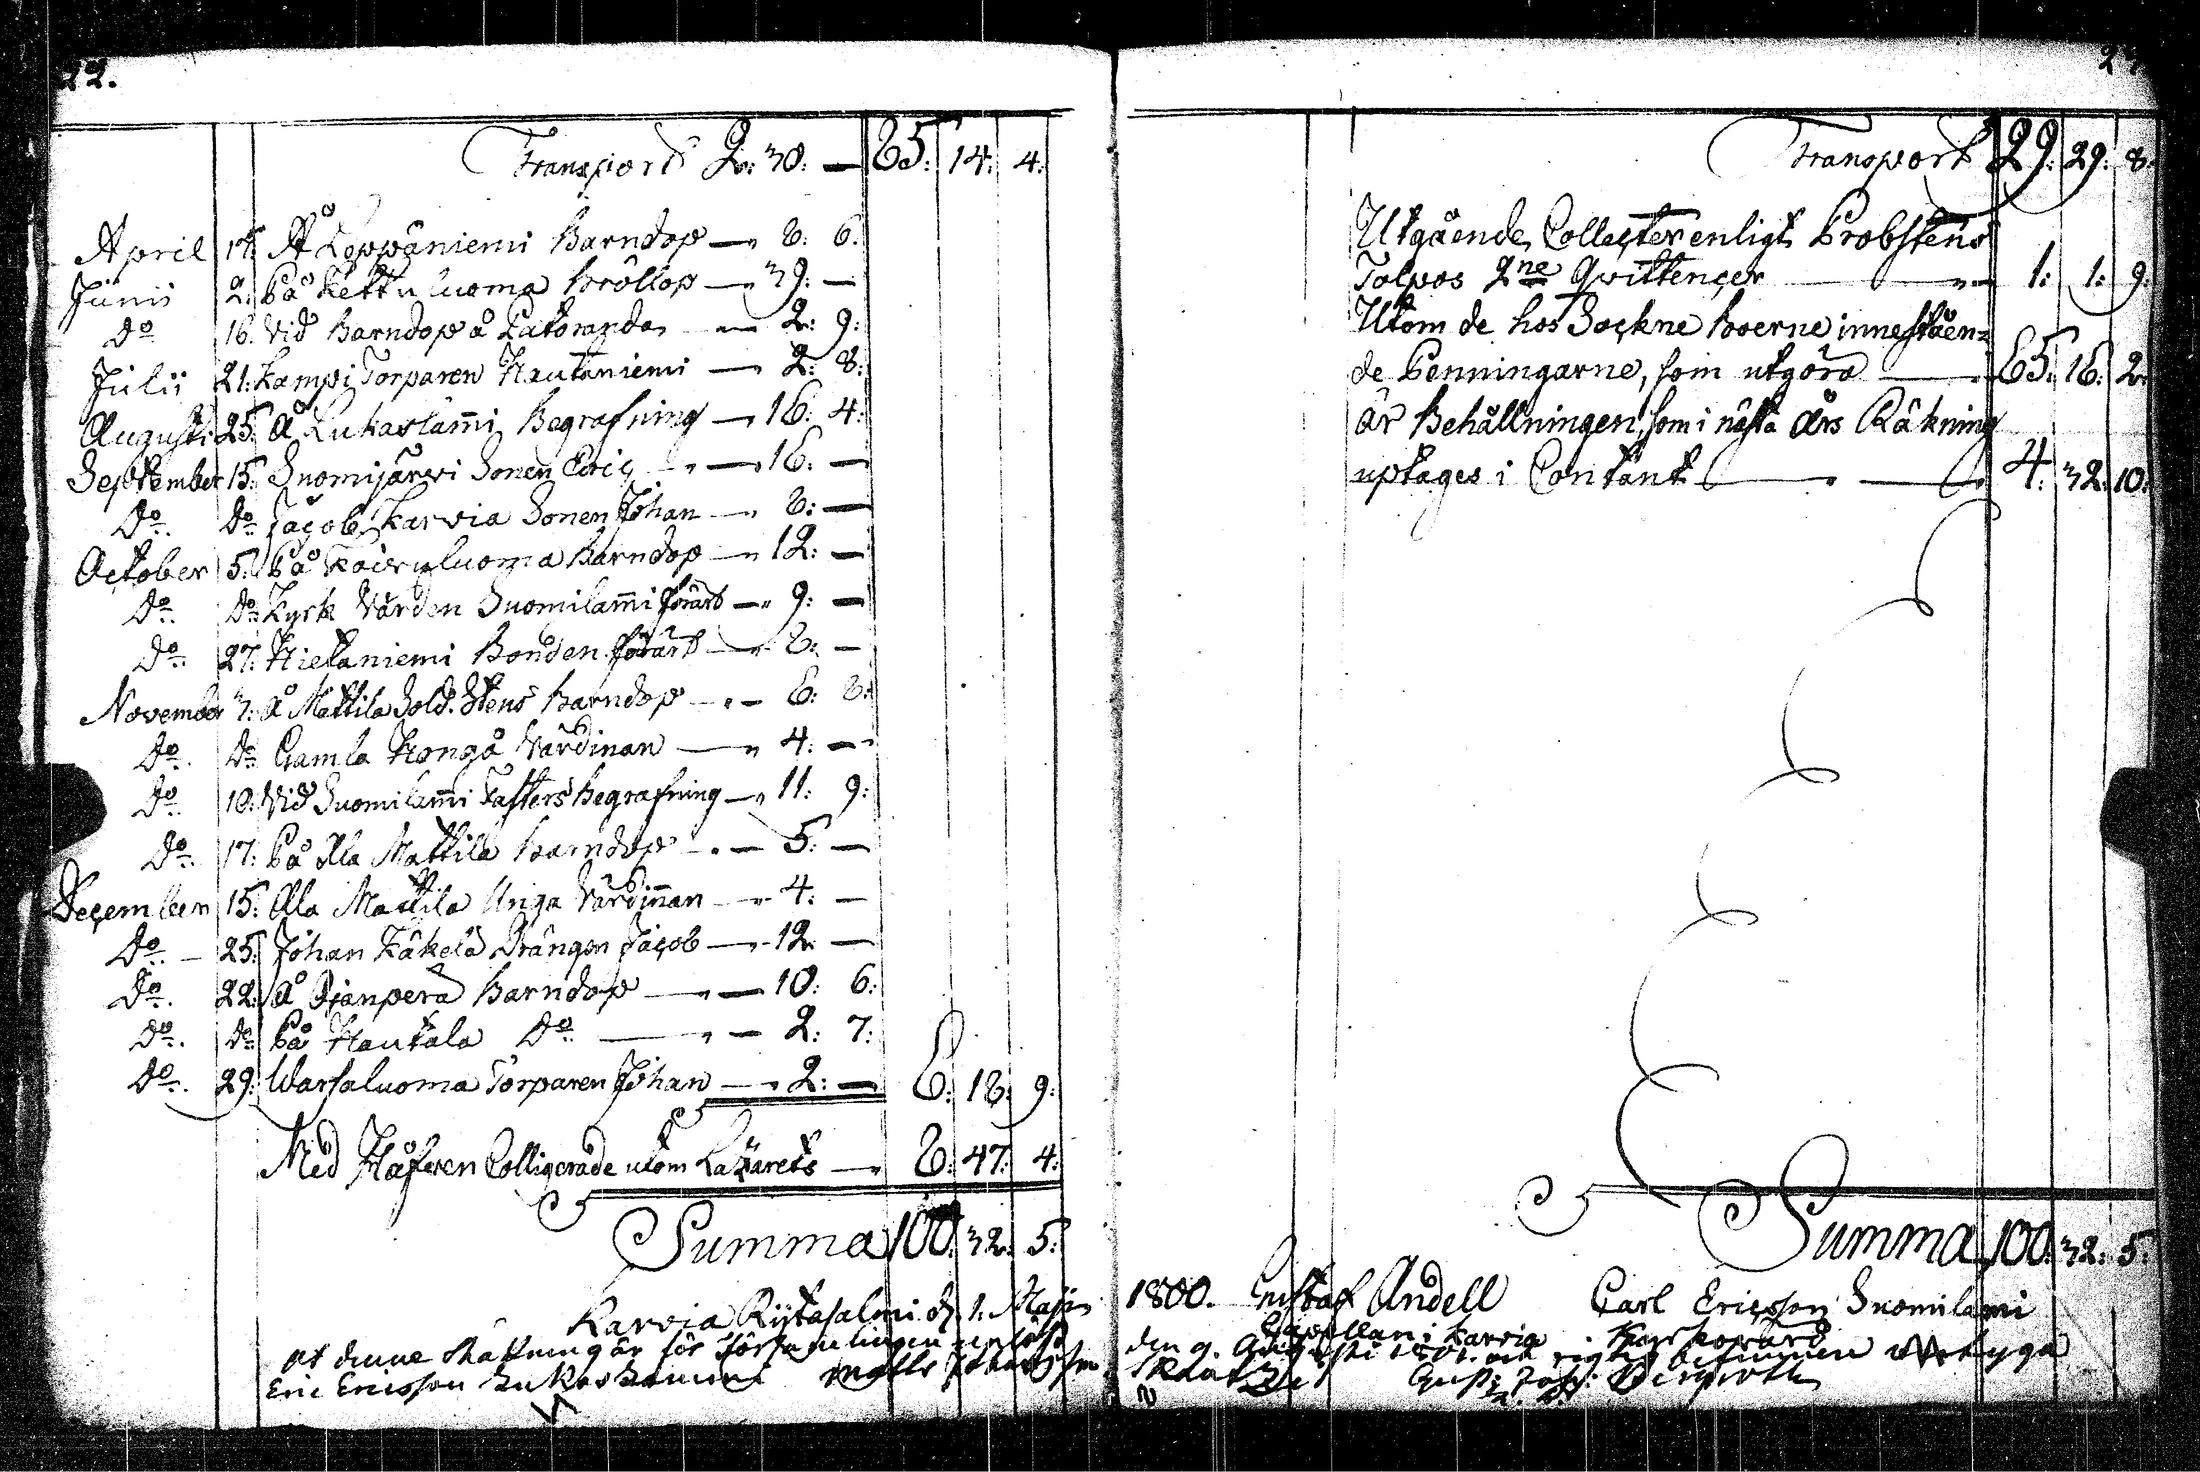 22.
Transport 2: 30. — 85: 14: 4:
April 14: Å Löppäniemi Barndop — " 8: 6:
Junii 2: På Kettuluoma Bröllop — " 39: —
Do 16. Vid Barndop å Patoranda — " 2: 9:
Julii 21: Kampi Torparen Hautaniemi — " 2: 8:
Augusti 25: Å Lukaslam̄i Begrafning — " 16: 4:
September 15: Suomijärvi Sonen Eric — " 16: —
Do. Do Jacob Karvia Sonen Johan — " 8: —
October 5: På Kaieruluoma Barndop — " 12: —
Do. Do Kyrk Värden Suomilam̄i förärt — " 9: —
Do. 27: Hietaniemi Bonden förärt — " 8: —
November 3: å Mattila Sold. Stens Barndop — " 6: 8:
Do. Do Gamla Hongå Värdinan — " 4: —
Do. 10: Vid Suomilam̄i Fasters Begrafning — " 11: 9:
Do. 17: På Ala Mattila Barndop — " 5: —
December 15: Ala Mattila Unga Värdin̄an — " 4: —
Do. 25: Johan Käkelä Drängen Jacob — " 12: —
Do. 22: Å Ojanperä Barndop — " 10: 6:
Do. Do På Hautala Do. — " 2: 7:
Do. 29: Warsaluoma Torparen Johan — " 2: — 6: 18: 9:
Med Håfwen Colligerade utom Lazarets — " 8: 47: 4:
Summa 100: 32: 5:
Karvia Kytäsalmi d. 1. Maji
At denne Räkning är för Församlingen upläst
Eric Ericsson Lukaslammi Matts
Transport 29: 29: 8.
Utgående Collecter enligt Probstens
Tolpos 2ne Qvittencer — " 1: 1: 9:
Utom de hos Sockne boerne innestäen=
de Penningarne, som utgöra — 65: 16: 2:
är Behållningen, som i nästa års Räkning
uptages i Contant — 4: 32: 10:
Summa 100: 32: 5:
1800. Gustaf Andell Carl Ericsson Suomilami
Capellan i Karvia. Kyrkovärd
den 9. Augusti 1801. och rigtig befunnen betyga